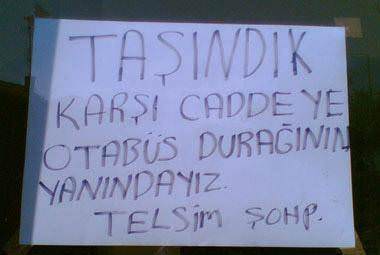 TAŞINDIK
KARŞI CADDEYE
OTABÜS DURAĞININ
YANINDAYIZ.
TELSİM ŞOHP.